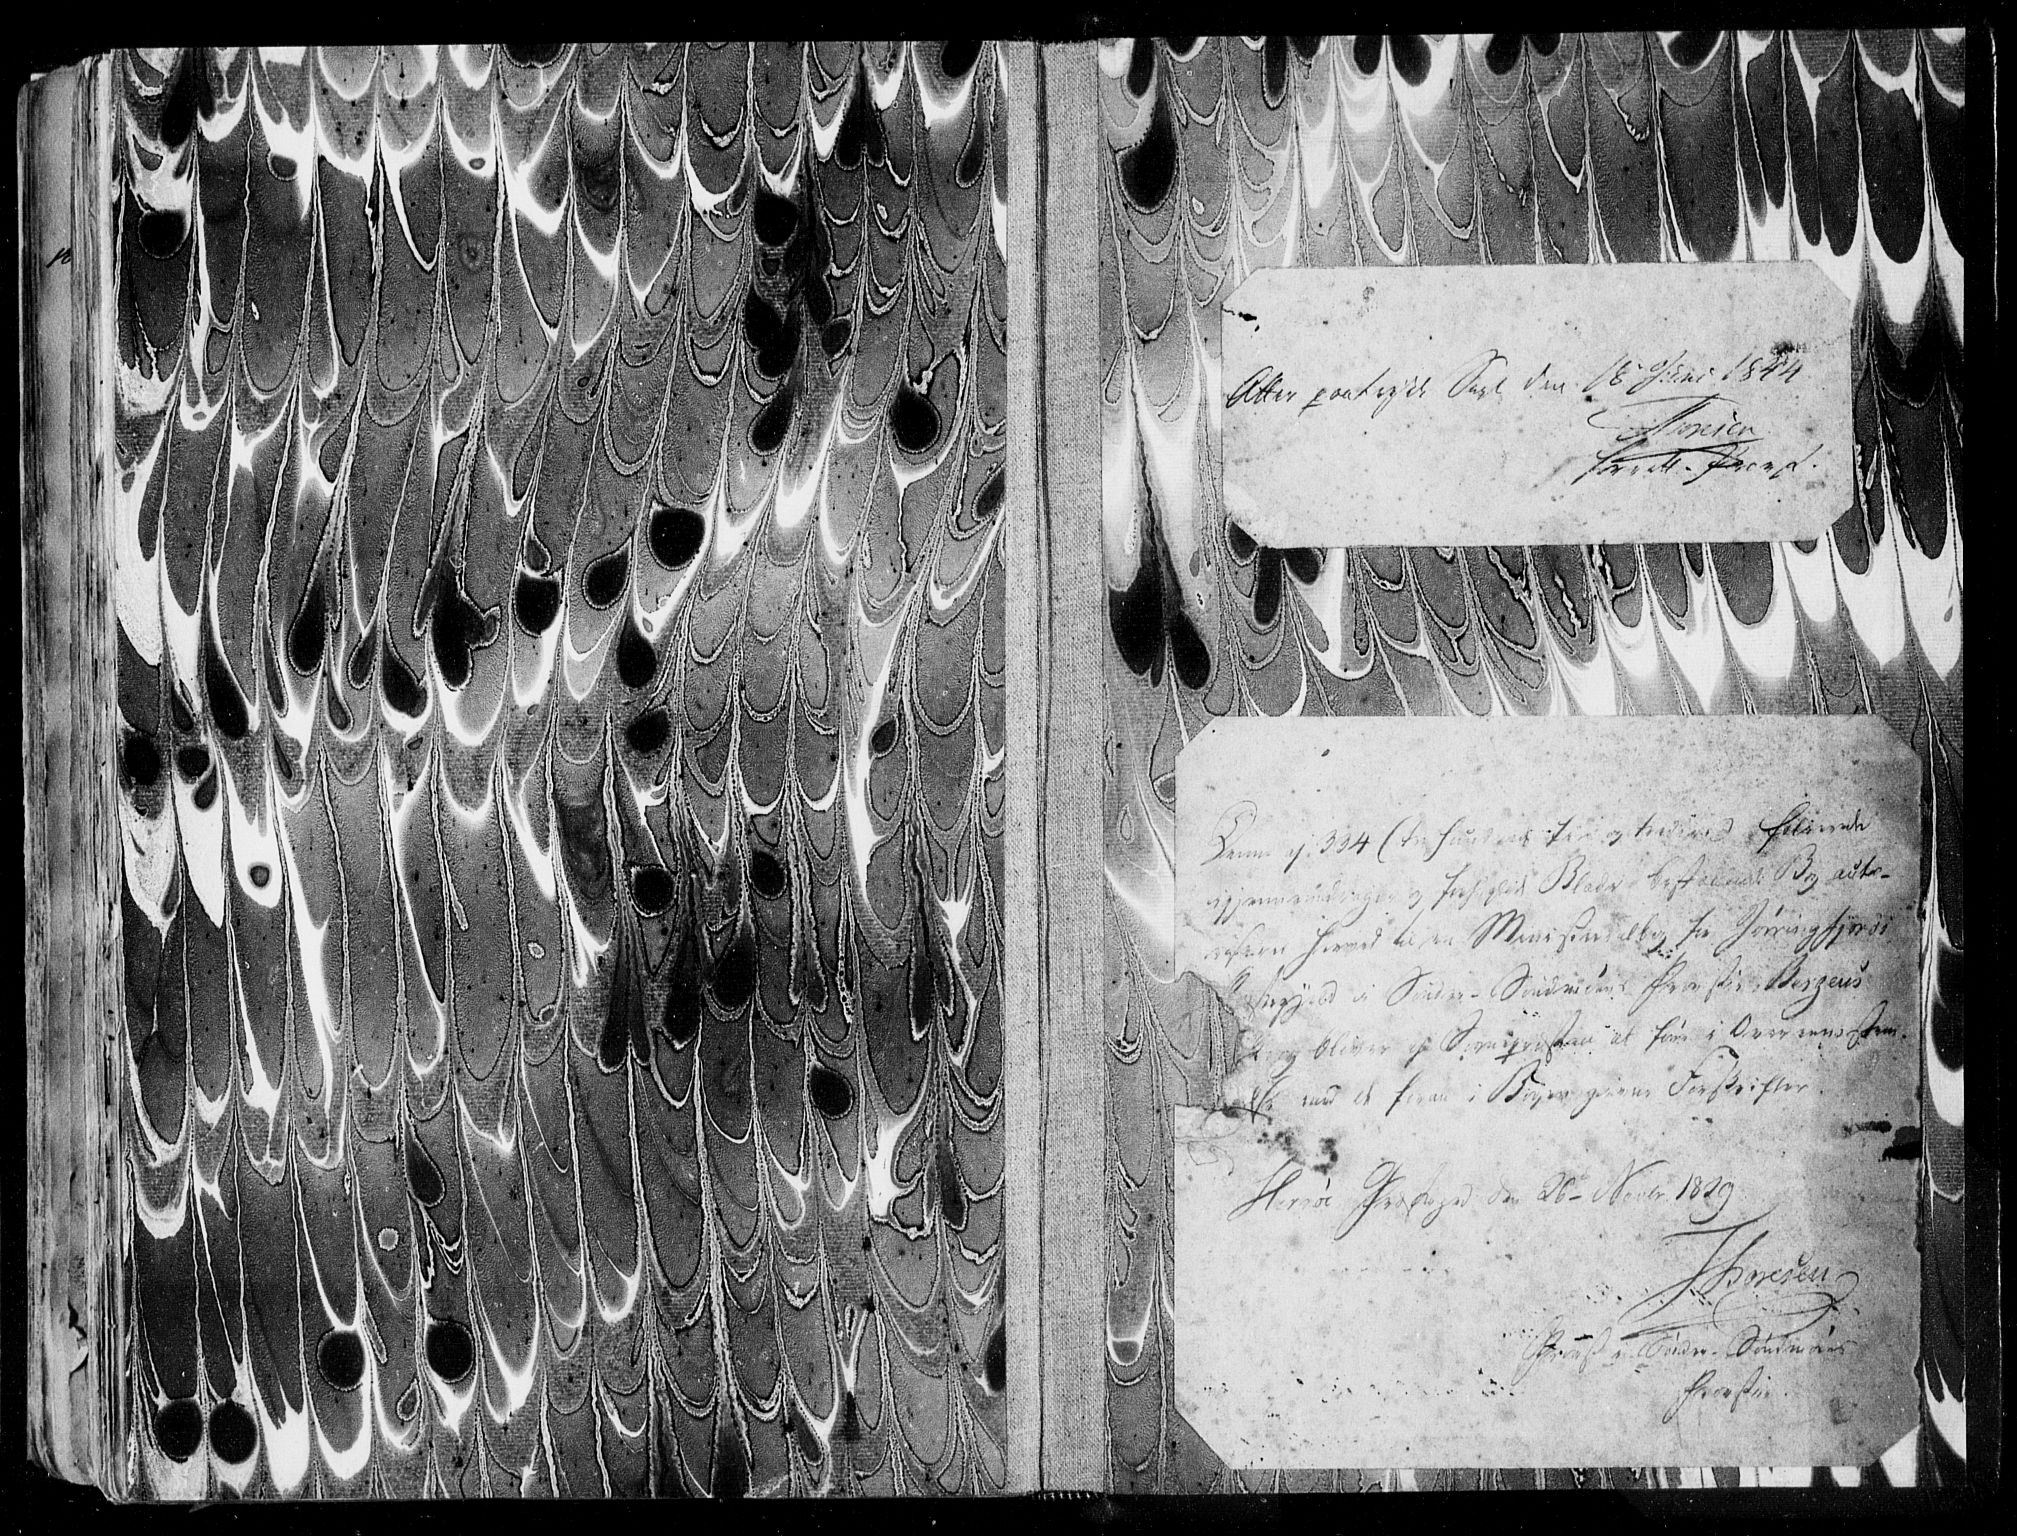 Atter paatrykt Segl den 18 Juni 1844
Thoresen
const. Provst.
Denne af 334 (tre hundrede fire og tredive) folierede
igjennemdragne og forseglede Blade bestaaende Bog auto-
riseres herved til en Ministerialbog for Jørringfjords
Præstegjeld i Søndre-Søndmørs Provstie, Bergens
og bliver af Sognepræsten at føre i Overeensstem-
melse med de foran i Bogen givne Forskrifter.
Herrøe Præstegaard den 26 Novbr 1829
Thoresen
Provst i Søndre-Søndmørs
Provstie.